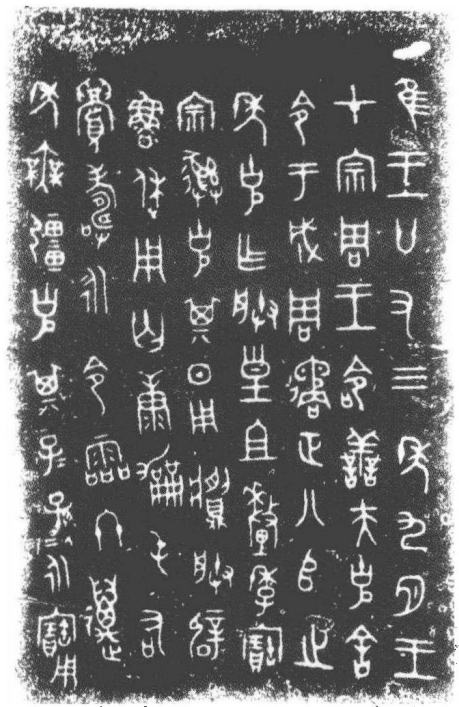 隹王廿又三年九月王
才宗周王命善夫克舍
令于成周遹正八𠂤之
年克乍朕皇且釐季寶
宗彝克其日用𩰫朕辟
魯休用匄康屯右
眉壽永令霝冬邁
年無疆克其子子孫孫永寶用